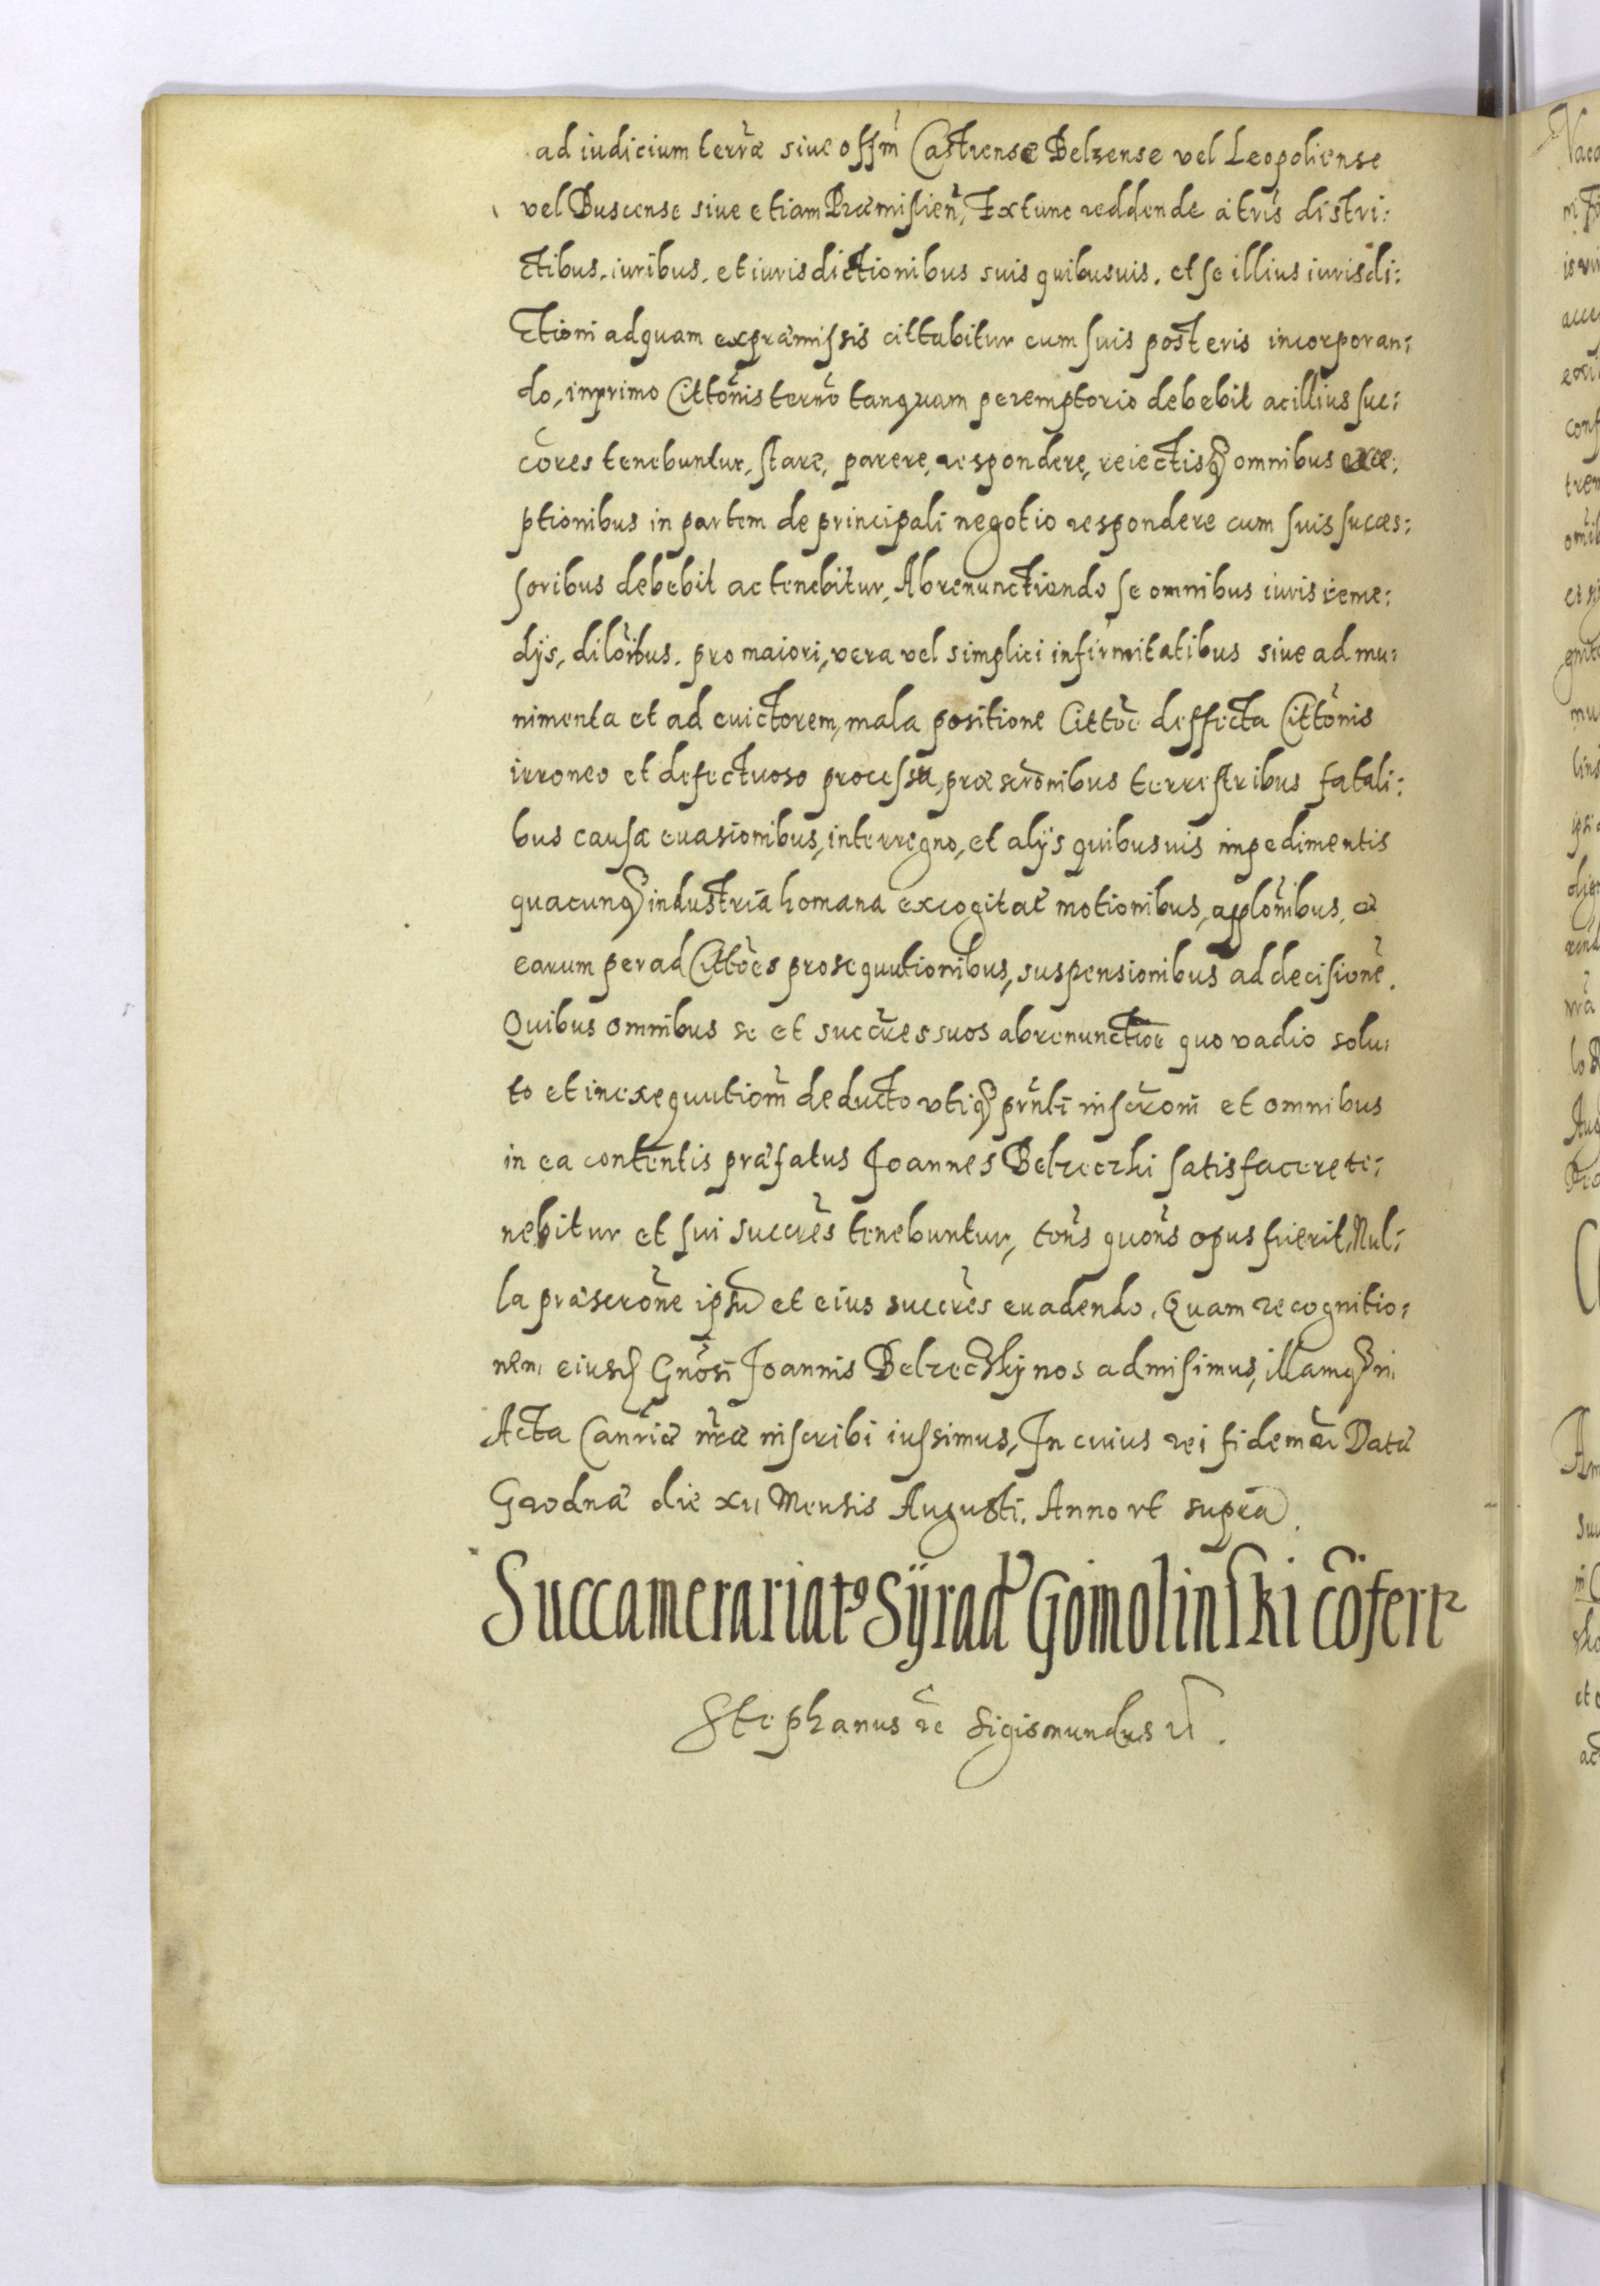 ad iudicium terrae siue offm̃ Castrense Belzense vel Leopoliense
vel Buscense siue etiam Præmislien̄, Ex tunc reddende a tris distri:
ctibus. iuribus. et iurisdictionibus suis quibusuis. et se illius iurisdi:
ctioni ad quam ex præmissis cittabitur cum suis posteris incorporan:
do, in primo Citto͠nis termo͠ tanquam peremptorio debebit ac illius suc:
co͠res tenebuntur, stare, parere, respondere, reiectisq̃ omnibus exce:
ptionibus in partem de principali negotio respondere cum suis succes:
soribus debebit ac tenebitur, Abrenunctiando se omnibus iuris reme:
dijs, dilo͠ibus. pro maiori, vera vel simplici infirmitatibus siue ad mu:
nimenta et ad euictorem, mala positione Citto͠e deffecta Citto͠nis
irroneo et defectuoso processu, præscro͠nibus terrestribus fatali:
bus causæ euasionibus, interregno, et alijs quibusuis impedimentis
quacunq̃ industria homana excogitat motionibus, applo͠nibus, et
earum per ad Citto͠es prosequutionibus, suspensionibus ad decisionẽ.
Quibus omnibus se et succr̃es suos abrenunctioe quo vadio solu:
to et in exequutiom̃ deducto vtiq̃ prñti inscrom̃ et omnibus
in ea contentis præfatus Joannes Belzeczki satisfacere te:
nebitur et sui succr̃es tenebuntur, ton̄s quon̄s opus fuerit, Nul:
la præscro͠ne ipsũ et eius succr̃es euadendo. Quam recognitio:
nem eiusd̃ Gno͠si Joannis Belzeczkij nos admisimus, illamq̃ in
Acta Canr̃iæ nr̃æ inscribi iussimus, In cuius rei fidem etc̃ Datæ
Grodnæ die xii Mensis Augusti. Anno vt supra.
Succamerariatꝰ Sÿrad̃ Gomolinski cõfertr
Stephanus etc̃ Sigismundus R̃.